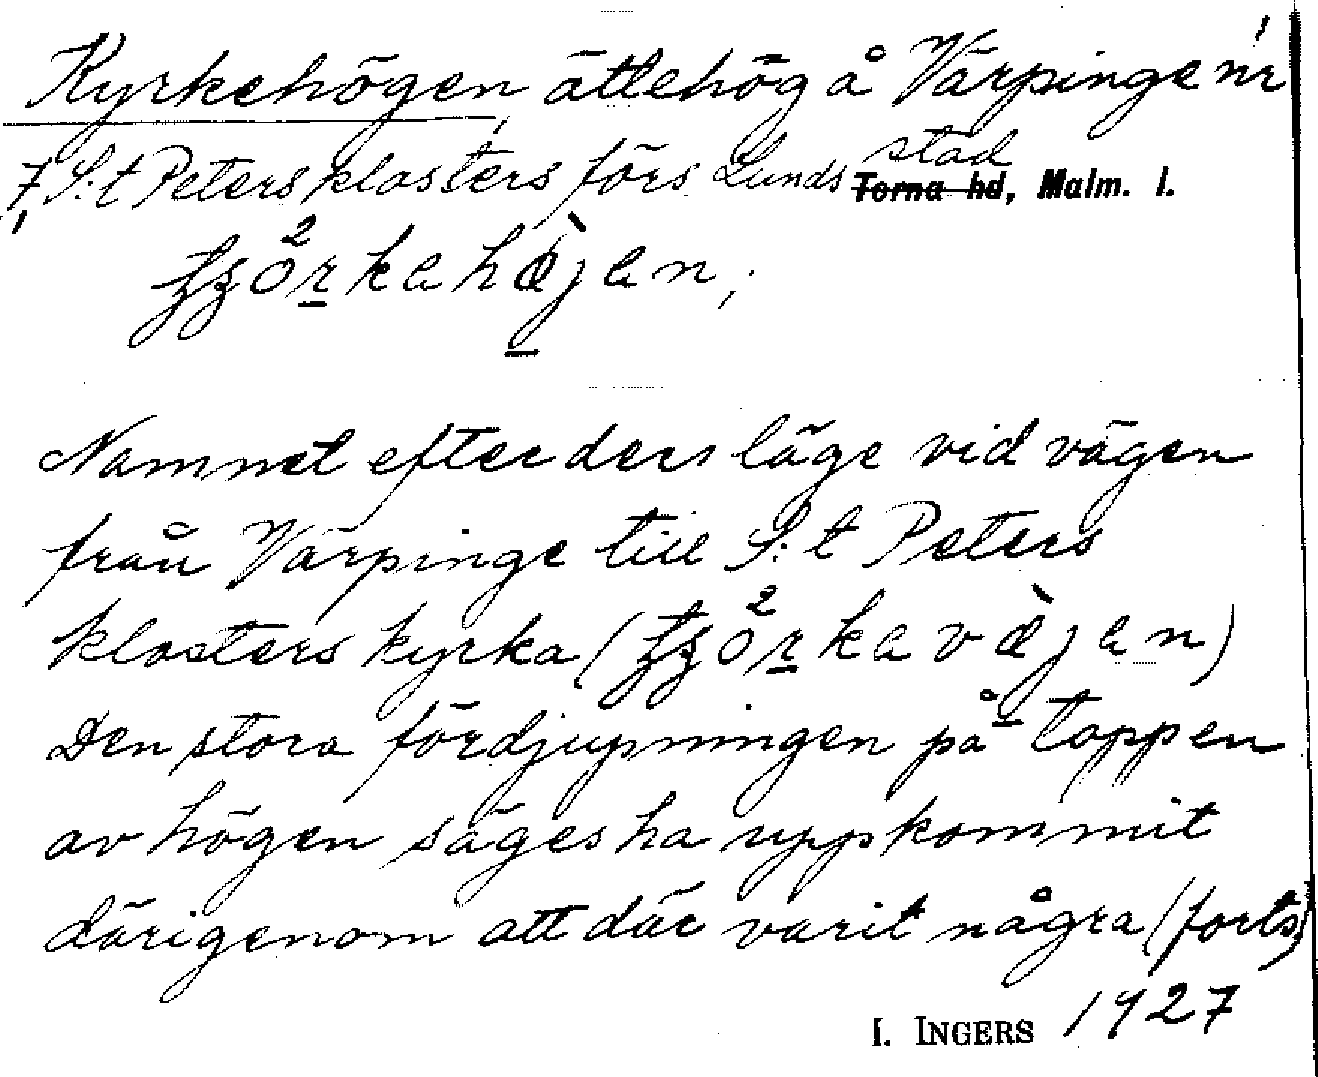 Kyrkehögen, ättehög å Värpinge nr
7, S:t Peters klosters förs Lunds stad
Torna hd, Malm. l.
Namnet efter dess läge vid vägen
från Värpinge till S:t Peters
klosters kyrka (
Den stora fördjupningen på toppen
av högen säges ha uppkommit
därigenom att där varit några (forts)
I. INGERS 1927